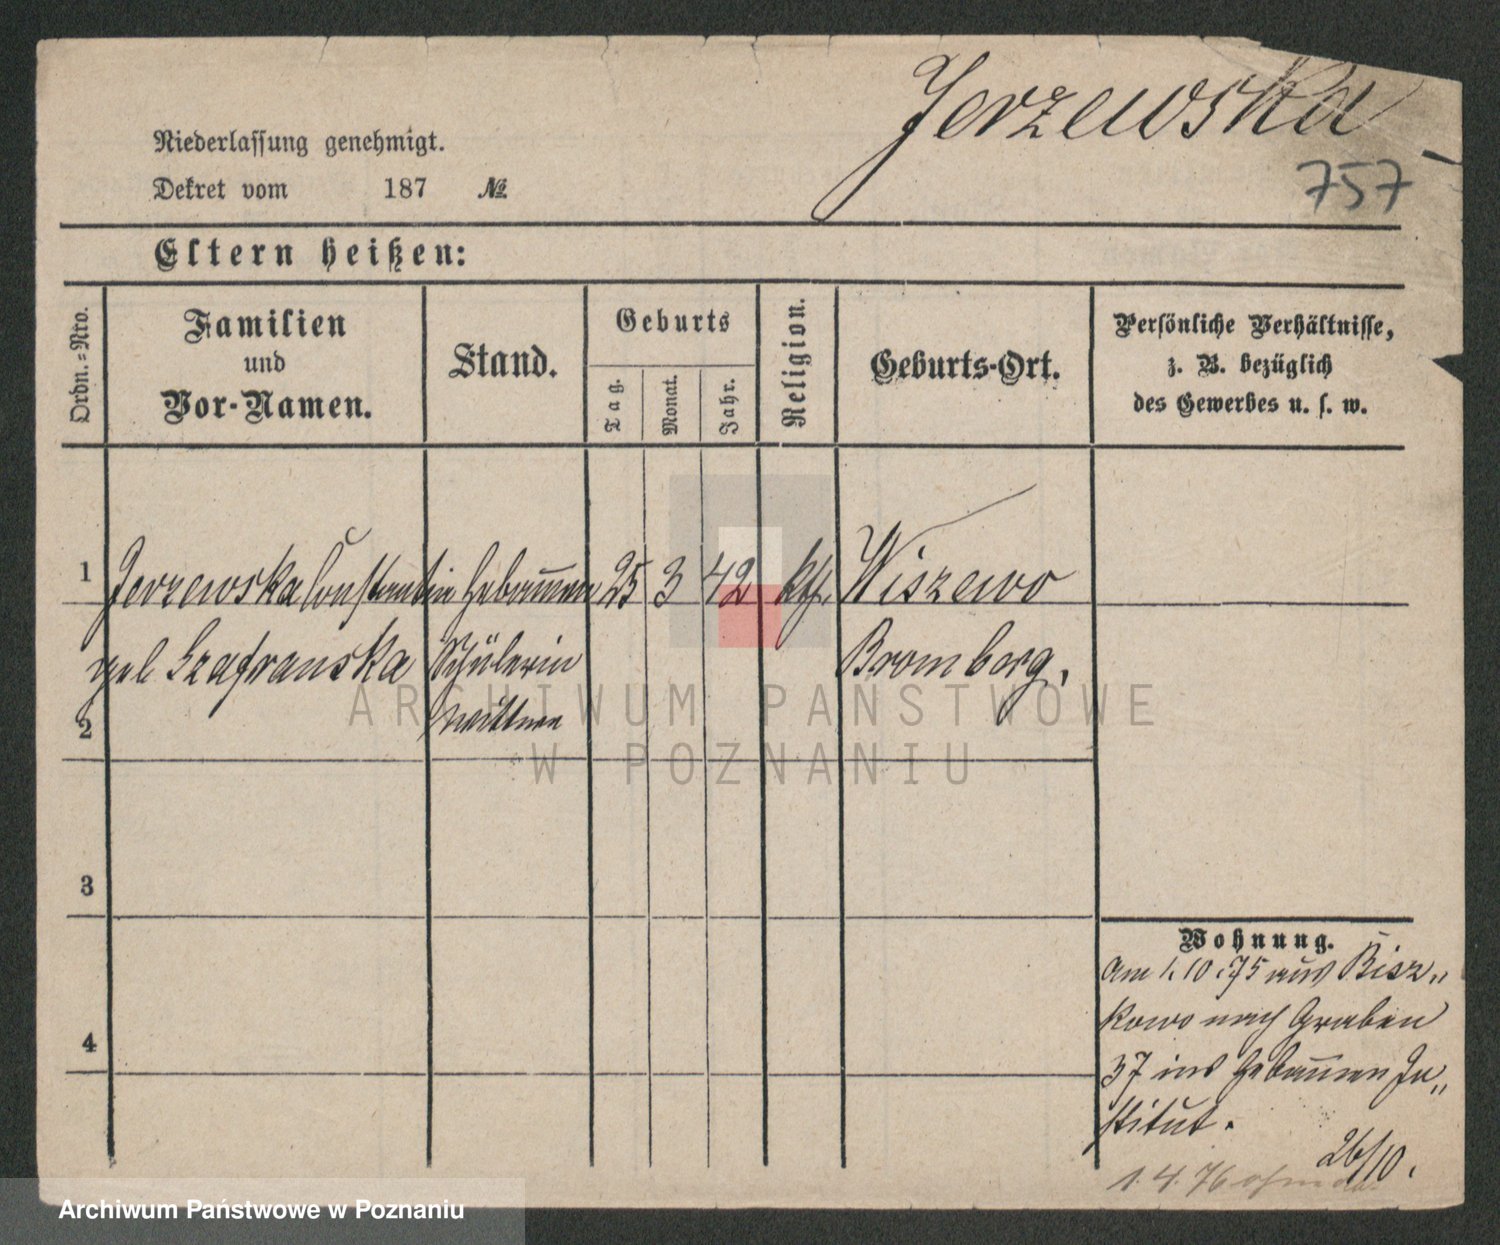 Jerzewska
757
Niederlassung genehmigt.
Dekret vom 187 №
Eltern heißen:
Ordn.=Nro.
Familien
und
Vor-Namen.
Stand.
Geburts
Tag.
Monat.
Jahr.
Religion.
Geburts-Ort.
Persönliche Verhältnisse,
z. B. bezüglich
des Gewerbes u. s. w.
1 Jerzewska Constantin Hebammen 25 3 42 kth. Wiszewo
geb Szafranska Schülerin Bromberg.
2 Wittwe
3
4
Wohnung.
am 1.10.75 aus Kisz„
kowo nach Graben
37 ins Hebammen In„
stitut.
26/10.
1.4.76
ARCHIWUM PAŃSTWOWE
W POZNANIU
Archiwum Państwowe w Poznaniu